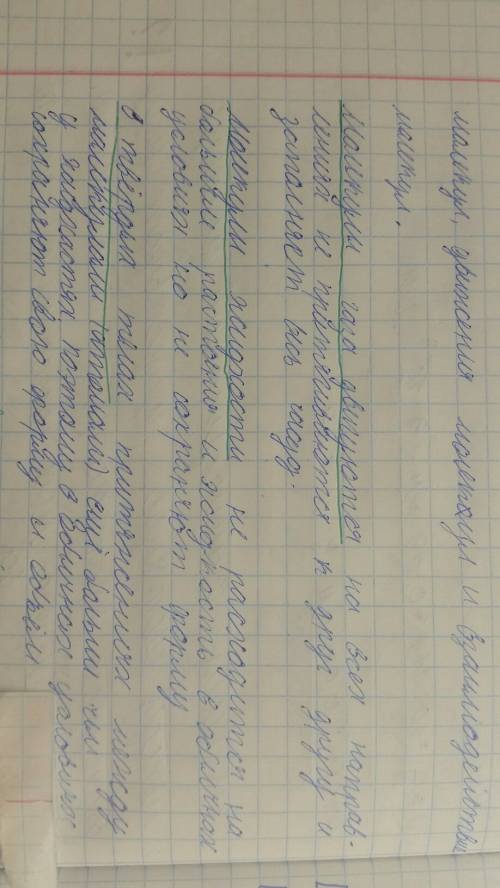 молекул, движения молекул и взаимодействия
молекул.
Молекулы газа движутся на всех направ-
лений не притягиваются к друг другу и
заполняет весь сосуд.
Молекулы жидкости не расходится на
большие растояние и жидкость в обычных
условиях но не сохраняют форму
В твёрдых телах притяжениях между
молекулами (атомами) ещё больше чем
у жидкостях поэтому в обычных условиях
сохраняют свою форму и объём